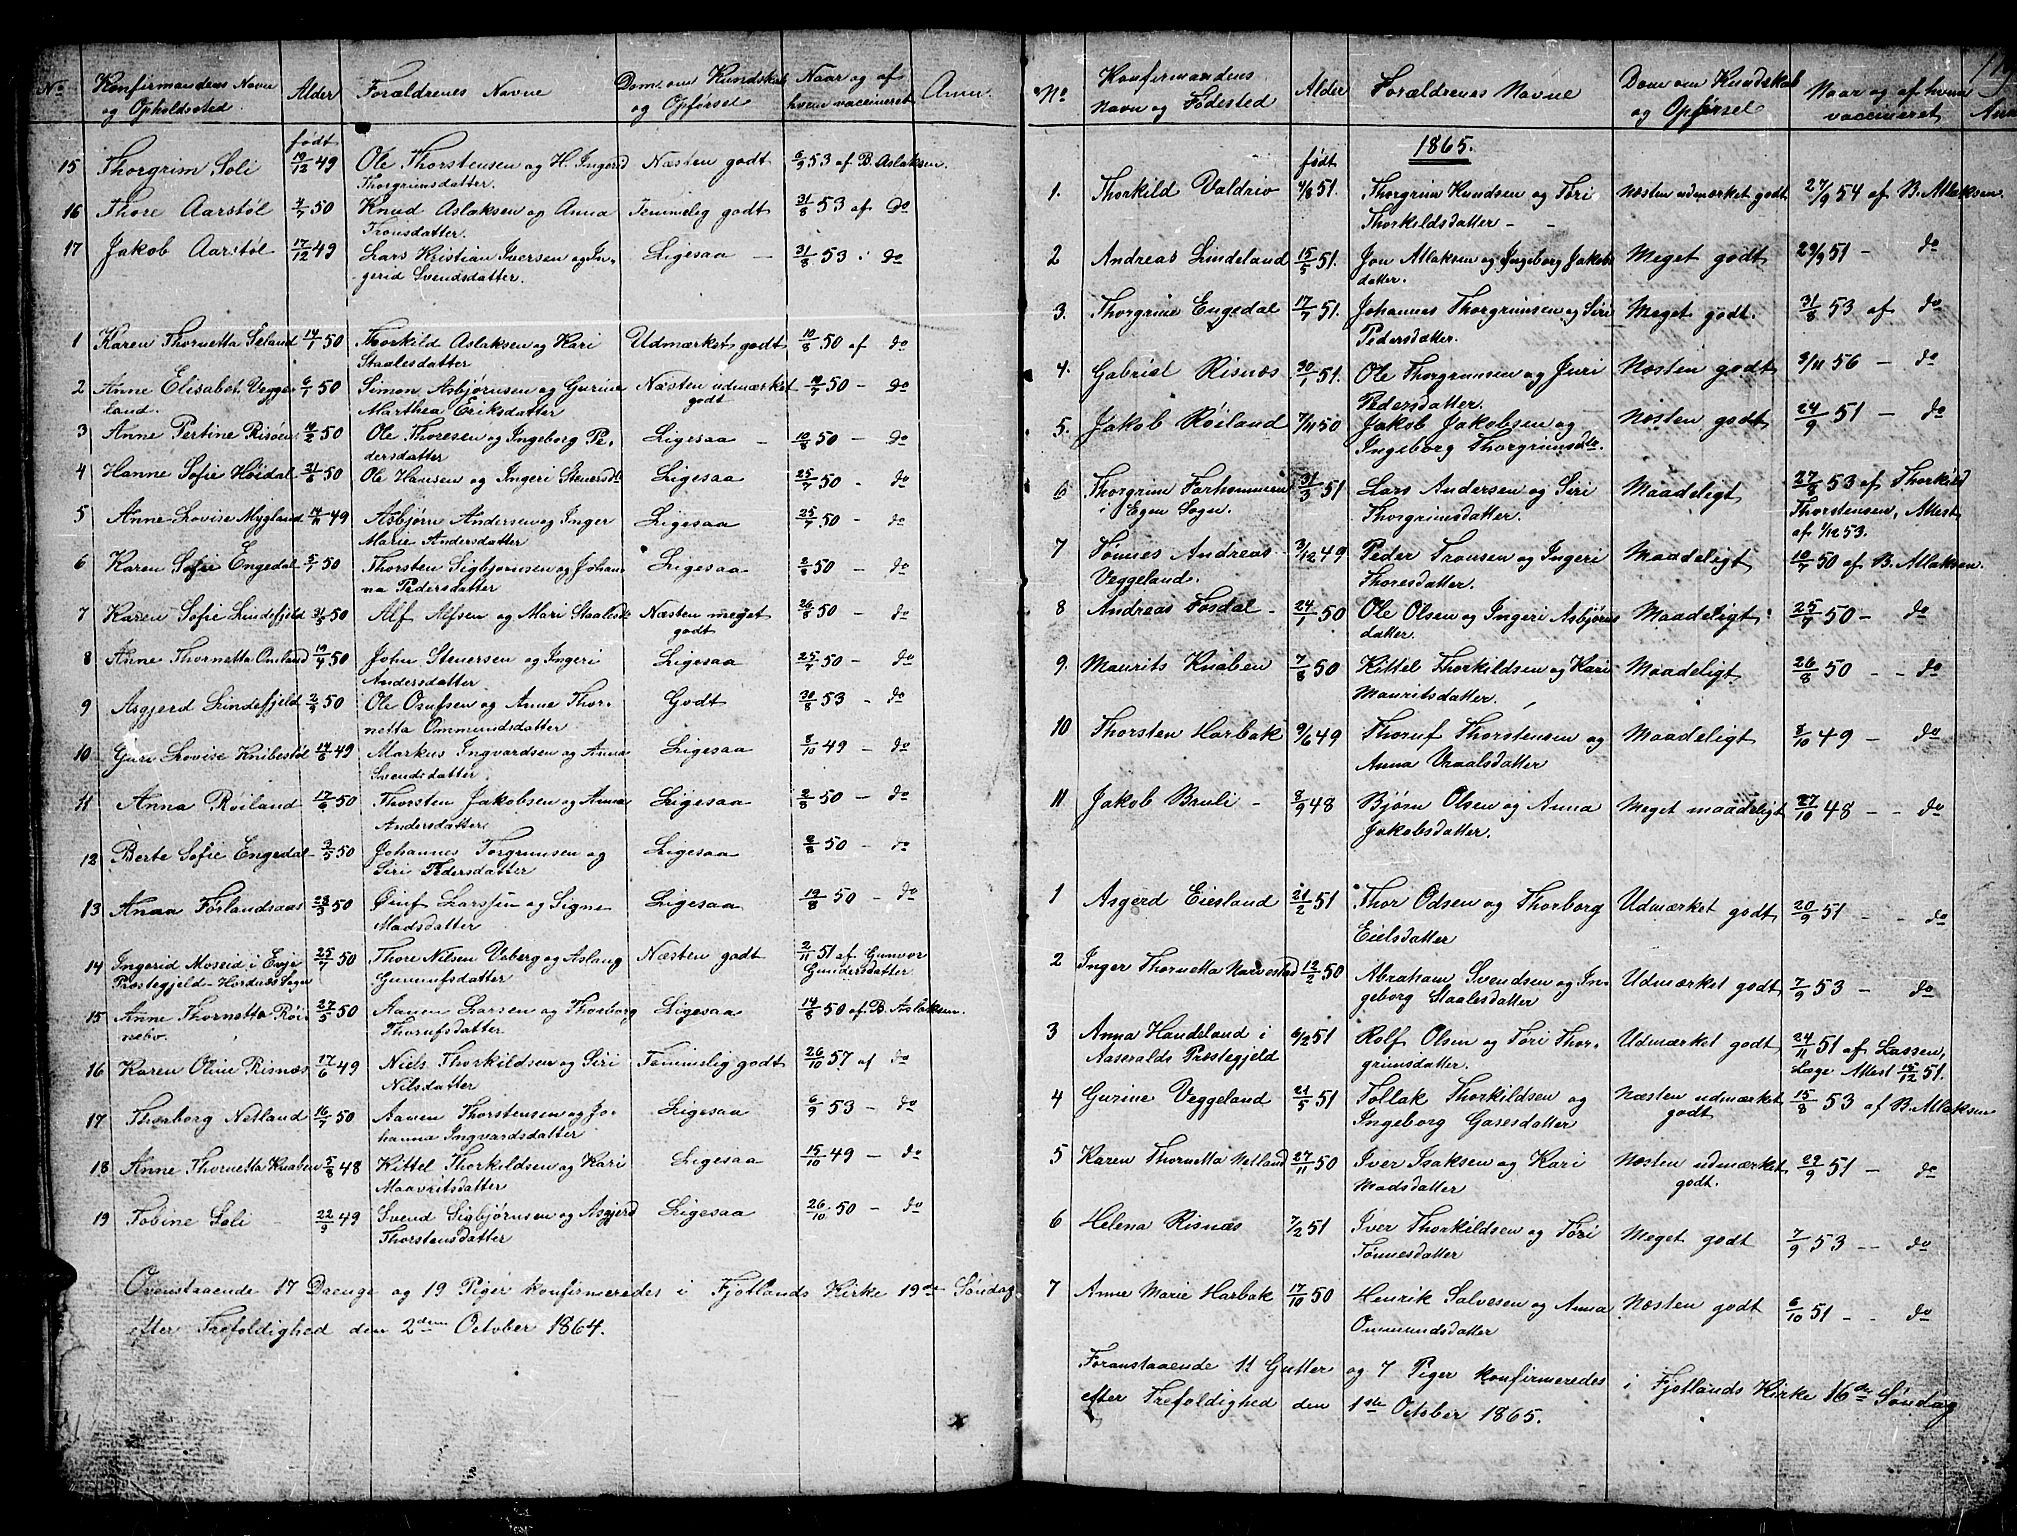 No Konfirmandens Navn og Opholdssted Alder Forældrenes Navne Dom om Kundskab og Opførsel Naar og af hvem vaccineret Anm.
født
15 Thorgrim Soli 19/12 49 Ole Thorstensen og H. Ingerid Næsten godt 6/9 53 af B. Aslaksen.
Thorgrimsdatter.
16 Thore Aarstøl 4/7 50 Knud Aslaksen og Anna Temmelig godt 31/8 53 af do
Tronsdatter.
17 Jakob Aarstøl 17/12 49 Lars Kristian Iversen og In- Ligesaa 31/8 53 do
gerid Svendsdatter.
1 Karen Thornetta Seland 14/1 50 Thorkild Aslaksen og Kari Udmærket godt 10/8 50 af do
Staalesdatter
2 Anne Elisabet Vegge- 6/1 50 Simon Asbjørnsen og Gurine Næsten udmærket 10/7 50 - do
land. Marthea Eriksdatter godt
3 Anne Pertine Risøen 10/2 50 Ole Thoresen og Ingeborg Pe- Ligesaa 10/8 50 - do
dersdatter
4 Hanne Sofie Høidal 31/6 50 Ole Hansen og Ingeri Stenersdt Ligesaa 25/7 50 - do
5 Anne Lovise Mygland 14/11 49 Asbjørn Andersen og Inger Ligesaa 25/7 50 - do
Marie Andersdatter
6 Karen Sofie Engedal 5/1 50 Thorsten Sigbjørnsen og Johan- Ligesaa 2/8 50 - do
na Pedersdatter
7 Karen Sofie Lindefjeld 31/5 50 Alf Alfsen og Mari Staalesdt Næsten meget 26/8 50 - do
godt
8 Anne Thornetta Omland 19/4 50 John Stenersen og Ingeri Ligesaa 25/7 50 - do
Andersdatter
9 Asgjerd Lindefjeld 2/4 50 Ole Osufsen og Anne Thor- Godt 30/8 53 - do
netta Ommundsdatter
10 Guri Lovise Knibestøl 14/6 49 Markus Ingvardsen og Anna Ligesaa 8/10 49 - do
Svendsdatter
11 Anna Røiland 17/6 50 Thorsten Jakobsen og Anna Ligesaa 2/8 50 - do
Andersdatter
12 Berte Sofie Engedal 3/5 50 Johannes Torgrimsen og Ligesaa 2/8 50 - do
Siri Pedersdatter
13 Anna Førlandsaas 23/3 50 Øiuf Larssen og Signe Ligesaa 19/8 50 - do
Madsdatter
14 Ingerid Moseid i Evje 25/7 50 Thore Nilsen Uberg og Aslaug Næsten godt 2/11 51 af Gunvor
Præstegjeld - Hordnæs Sogn Gunnufsdatter Gundersdatter
15 Anne Thornetta Røi- 27/5 50 Aanen Larsen og Thorborg Ligesaa 14/8 50 af B. Aslaksen.
nebo. Thorufsdatter
16 Karen Oline Risnæs 17/6 49 Niels Thorkildsen og Siri Temmelig godt 26/10 57 af do
Nilsdatter
17 Thorborg Netland 16/7 50 Aanen Thorstensen og Jo- Ligesaa 6/9 53 - do
hanna Ingvardsdatter
18 Anne Thornetta Knaben 5/8 48 Kittel Thorkildsen og Kari Ligesaa 15/10 49 - do
Maavritsdatter
19 Tobine Soli 22/9 49 Svend Sigbjørnsen og Asgjerd Ligesaa 26/10 50 - do
Thorstensdatter
Ovenstaaende 17 Drenge og 19 Piger konfirmeredes i Fjotlands Kirke 19de Søndag
efter Trefoldighed den 2den October 1864.
No Konfirmandens Navn og Fødested Alder Forældrenes Navne Dom om Kundskab og Opførsel Naar og af hvem vaccineret
1865.
født
1. Thorkild Valdrio 4/8 51. Thorgrim Knudsen og Tori Næsten udmærket godt 27/9 54 af B. Atlaksen.
Thorkildsdatter - -
2 Andreas Lindeland 15/5 51. Jon Atlaksen og Ingeborg Jakobs- Meget godt 29/9 51 - do
datter.
3. Thorgrim Engedal 17/7 51. Johannes Thorgrimsen og Siri Meget godt. 31/8 53 af do
Pedersdatter.
4. Gabriel Risnæs 30/1 51. Ole Thorgrimsen og Juri Næsten godt 3/11 56 - do
Pedersdatter.
5. Jakob Røiland 7/11 50 Jakob Jakobsen og Næsten godt 24/9 51 - do
Ingeborg Thorgrimsdtr.
6 Thorgrim Farhommen 31/3 51 Lars Andersen og Siri Maadeligt 27/8 53 af Thorkild
i Egen Sogn. Thorgrimsdatter. Thorstensen, Attest
af 1/12 53.
7 Tønnes Andreas 3/12 49 Peder Tronsen og Ingeri Maadeligt 10/7 50 af B. Atlaksen.
Veggeland. Thoresdatter.
8 Andreas Fosdal - 24/1 50 Ole Olsen og Ingeri Asbjørns- Maadeligt 25/7 50 - do
datter.
9. Maurits Knaben 7/8 50 Kittel Thorkildsen og Kari Maadeligt 26/8 50 - - do
Mauritsdatter.
10 Thorsten Harbak 9/6 49 Thoruf Thorstensen og Maadeligt 8/10 49 - do
Anna Vraalsdatter
11 Jakob Bruli - 8/9 48 Bjørn Olsen og Anna Meget maadeligt 27/10 48 - - do
Jakobsdatter.
1 Asgerd Eiesland 21/2 51 Thor Odsen og Thorborg Udmærket godt 20/9 51 - - do
Eielsdatter
2 Inger Thornetta Narvestad 12/2 50 Abraham Svendsen og In- Udmærket godt 7/9 53 - do
geborg Staalesdatter
3 Anna Handeland i 6/2 51 Rolf Olsen og Tori Thor- Udmærket godt 24/11 51 af Lassen,
Aaseralds Præstegjeld grimsdatter. Læge Attest 15/12 51.
4 Gurine Veggeland 21/5 51 Tollak Thorkildsen og Næsten udmærket 15/8 53 af B. Atlaksen
Ingeborg Gasesdatter godt
5 Karen Thornetta Netland 27/11 50 Iver Isaksen og Kari Næsten udmærket 29/9 51 - do
Madsdatter godt.
6 Helena Risnæs 7/2 51 Iver Thorkildsen og Tori Meget godt 7/9 53 - - do
Tønnesdatter
7 Anne Marie Harbak 17/10 50 Henrik Salvesen og Anna Næsten godt 6/10 51 - - do
Ommundsdatter
Foranstaaende 11 Gutter og 7 Piger konfirmeredes i Fjotlands Kirke 16de Søndag
efter Trefoldighed den 1ste October 1865.